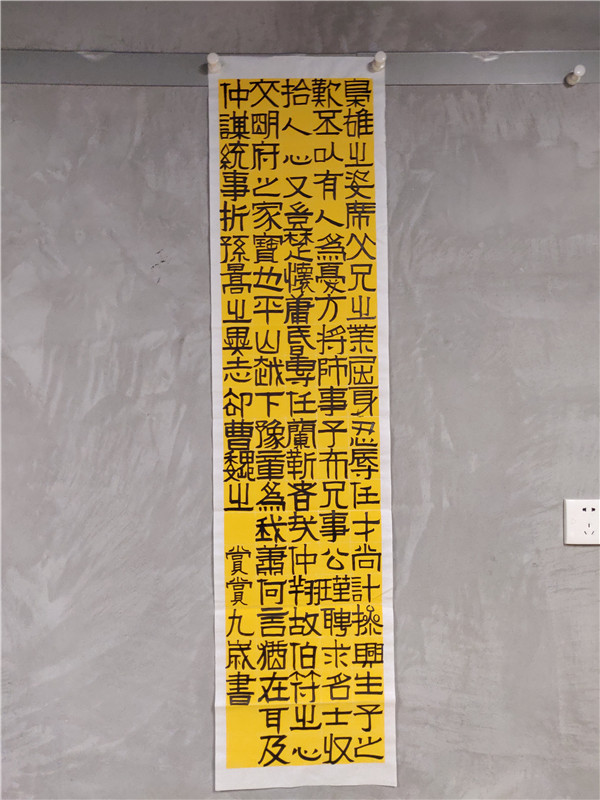 梟雄之姿席父兄之業屈身忍辱任才尚計操興生子之
歎丕以有人為憂方將師事子布兄事公瑾聘求名士收
拾人心又豈楚懷庸昏專任蘭靳者哉仲翔故伯符之心
交明府之家寶也平山越下豫章為我蕭何言猶在耳及
仲謀統事折孫暠之異志卻曹魏之
賞賞九歲書